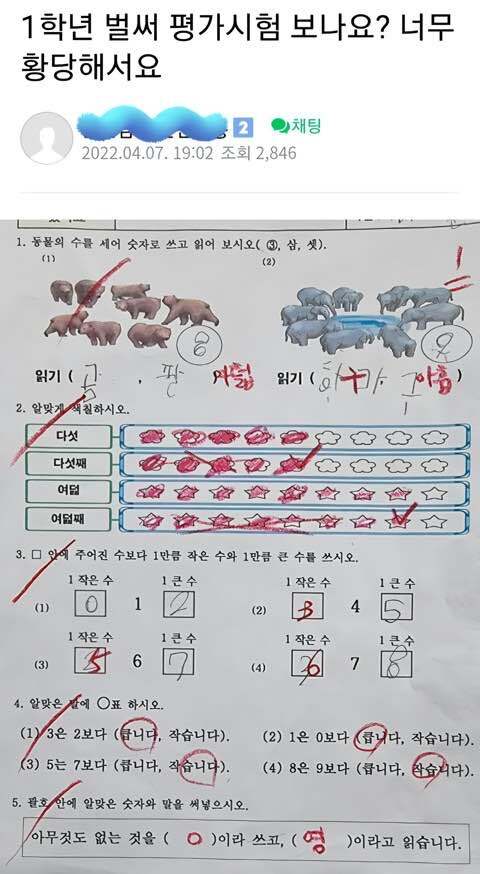 1학년 벌써 평가시험 보나요? 너무
황당해서요
2 채팅
2022.04.07. 19:02 조회 2,846
1. 동물의 수를 세어 숫자로 쓰고 읽어 보시오( ③, 삼, 셋).
(1) (2)
8 9
읽기 ( , 팔 ) 여덟 읽기 ( 아홉 )
2. 알맞게 색칠하시오.
다섯
다섯째
여덟
여덟째
3. □ 안에 주어진 수보다 1만큼 작은 수와 1만큼 큰 수를 쓰시오.
1 작은 수 1 큰 수 1 작은 수 1 큰 수
(1) 0 1 2 (2) 3 4 5
1 작은 수 1 큰 수 1 작은 수 1 큰 수
(3) 5 6 7 (4) 6 7 8
4. 알맞은 말에 ○표 하시오.
(1) 3은 2보다 (큽니다, 작습니다). (2) 1은 0보다 (큽니다, 작습니다).
(3) 5는 7보다 (큽니다, 작습니다). (4) 8은 9보다 (큽니다, 작습니다).
5. 괄호 안에 알맞은 숫자와 말을 써넣으시오.
아무것도 없는 것을 ( 0 )이라 쓰고, ( 영 )이라고 읽습니다.